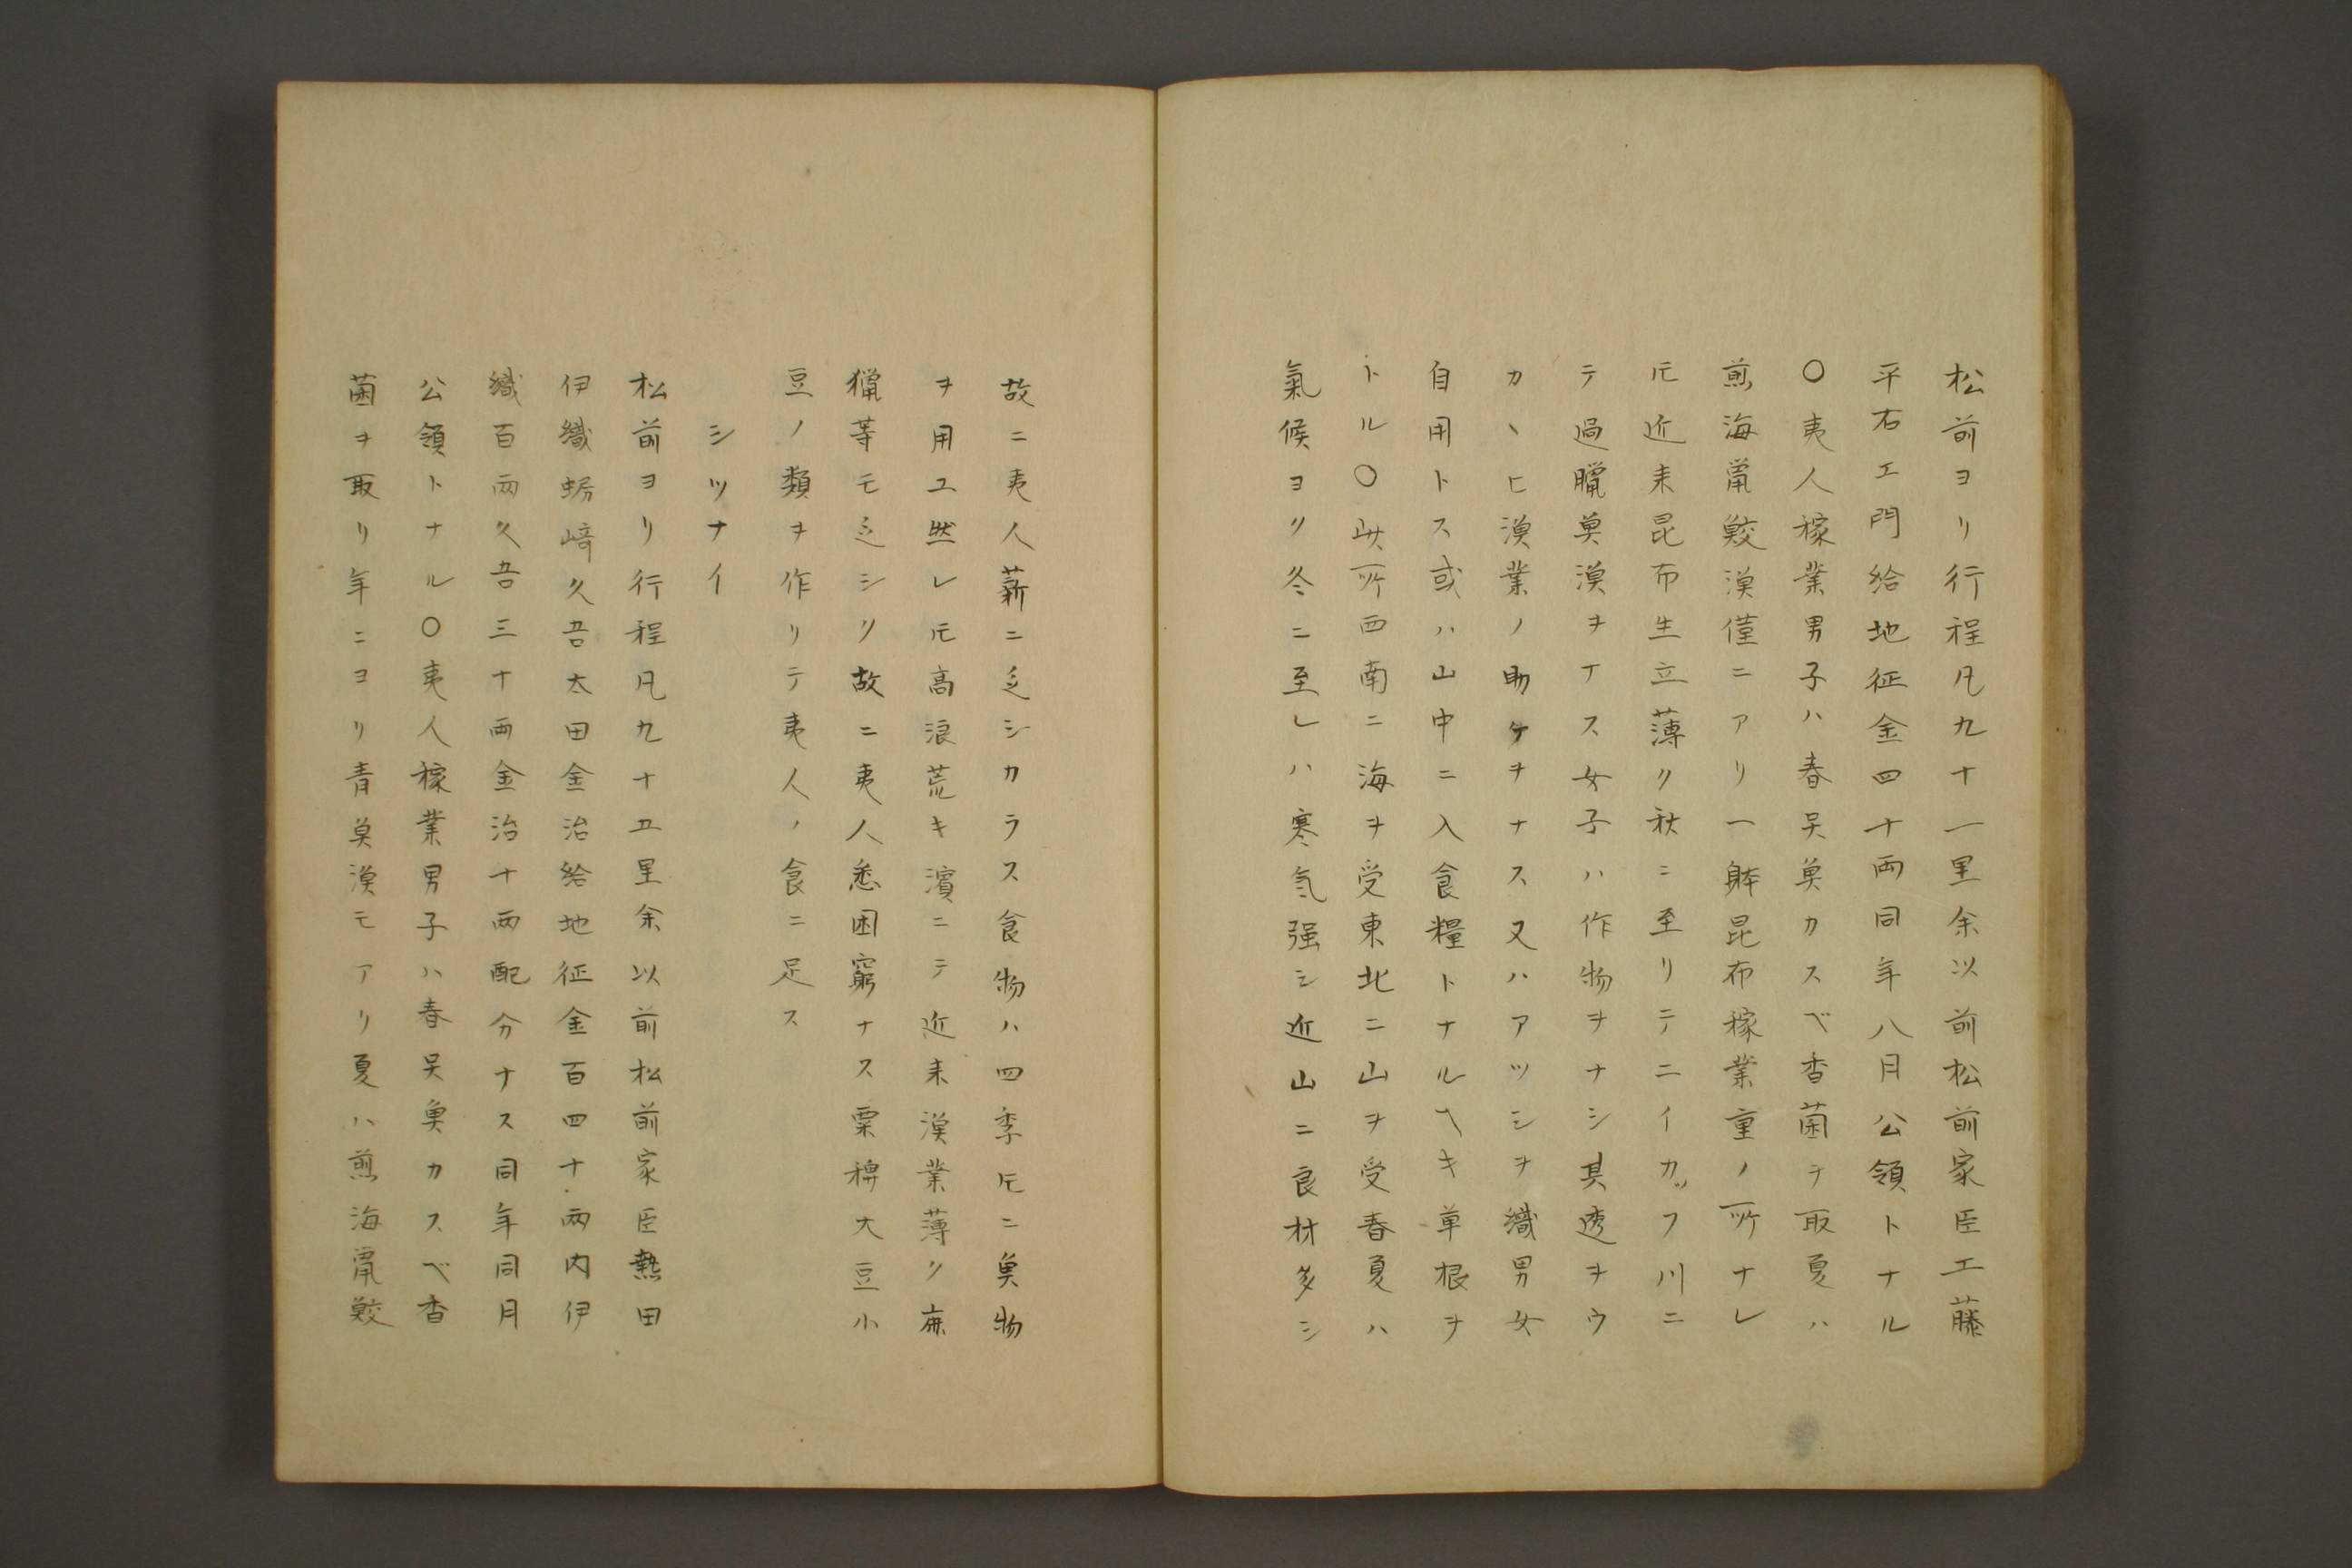 松前ヨリ行程凡九十一里余以前松前家臣工藤
平右エ門給地征金四十両同年八月公領トナル
○夷人稼業男子ハ春呈魚カスベ香菌ヲ取夏ハ
煎海鼠鮫漁僅ニアリ一躰昆布稼業重ノ所ナレ
𪜈近来昆布生立薄ク秋ニ至リテニイカッフ川ニ
テ過臘魚漁ヲナス女子ハ作物ヲナシ其透ヲウ
カヽヒ漁業ノ助ケヲナス又ハアツシヲ織男女
自用トス或ハ山中ニ入食糧トナルヘキ草根ヲ
トル○此所西南ニ海ヲ受東北ニ山ヲ受春夏ハ
氣候ヨク冬ニ至レハ寒気强シ近山ニ良材多シ
故ニ夷人薪ニ乏シカラス食物ハ四季𪜈ニ魚物
ヲ用ユ然レ𪜈高浪荒キ濱ニテ近来漁業薄ク鹿
獵等モ乏シク故ニ夷人悉困窮ナス粟稗大豆小
豆ノ類ヲ作リテ夷人ノ食ニ足ス
シツナイ
松前ヨリ行程凡九十五里余以前松前家臣熱田
伊織蛎﨑久吾太田金治給地征金百四十両内伊
織百両久吾三十両金治十両配分ナス同年同月
公領トナル○夷人稼業男子ハ春呈魚カスベ香
菌ヲ取リ年ニヨリ青魚漁モアリ夏ハ煎海鼠鮫